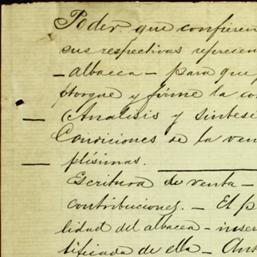 Poder que confieren
sus respectivas represen
- albacea - para que
otorgue y firme la co
- Analisis y Sintese
Condiciones de la ven
- plísimas.
Escritura de venta -
contribuciones. - El p
lidad del albacea - inser
tificada de ella - Ans